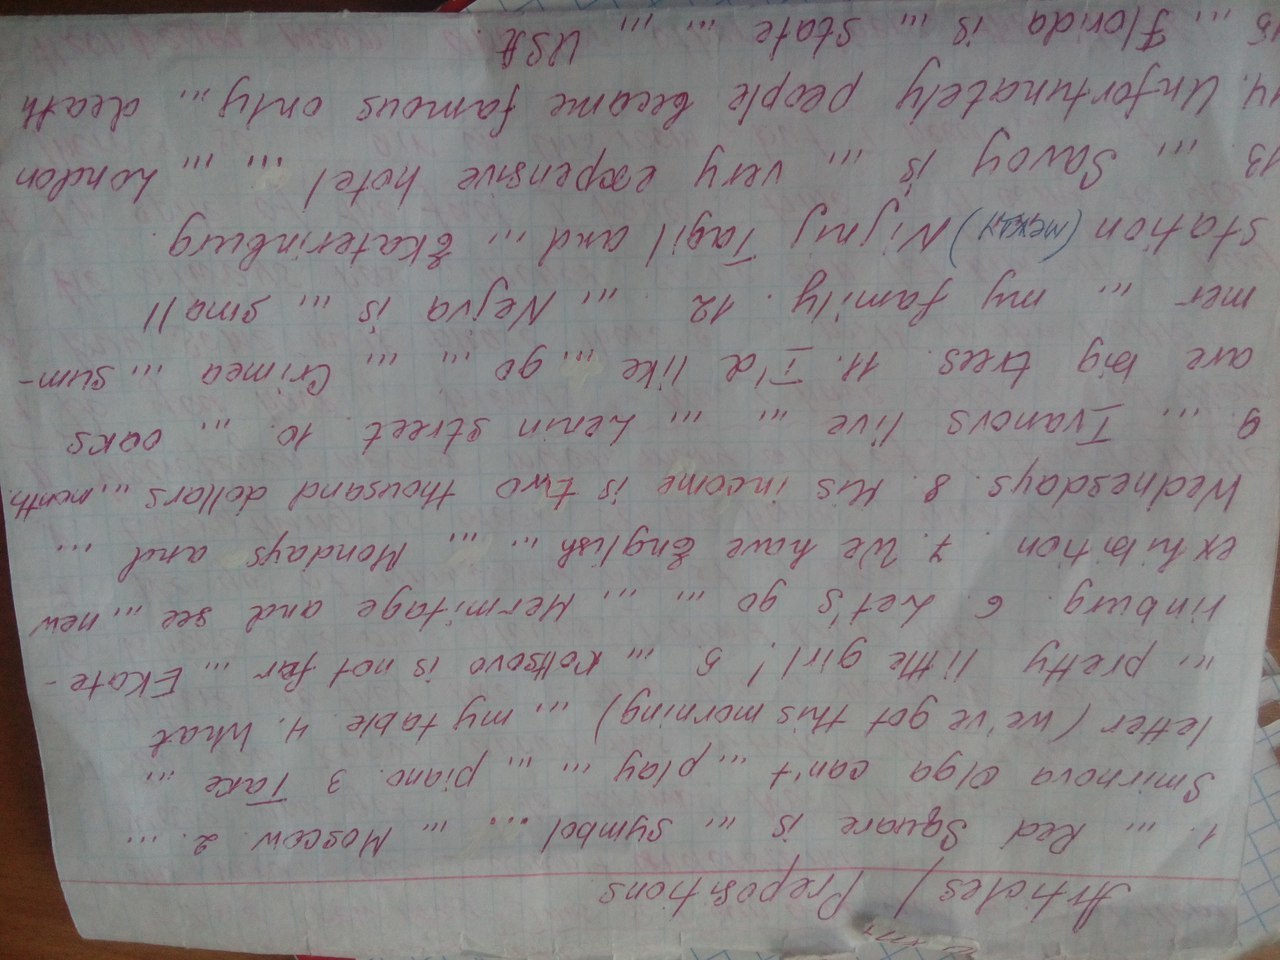 Articles / Prepositions
1. ... Red Square is ... symbol ... ... Moscow. 2. ...
Smirnova Olga can't ... play ... ... piano. 3 Take ...
letter (we've got this morning) ... my table. 4. What
... pretty little girl! 5. ... Koltsovo is not far ... Ekate-
rinburg. 6. Let's go ... ... Hermitage and see ... new
exhibition. 7. We have English ... ... Mondays and ...
Wednesdays. 8. His income is two thousand dollars ... month.
9. ... Ivanovs live ... ... Lenin street. 10. ... oaks
are big trees. 11. I'd like ... go ... ... Crimea ... sum-
mer ... my family. 12. ... Nejva is ... small
station (между) Nijnij Tagil and ... Ekaterinburg.
13. ... Savoy is ... very expensive hotel ... ... London
14. Unfortunately people become famous only ... death
15 ... Florida is ... state ... ... USA.